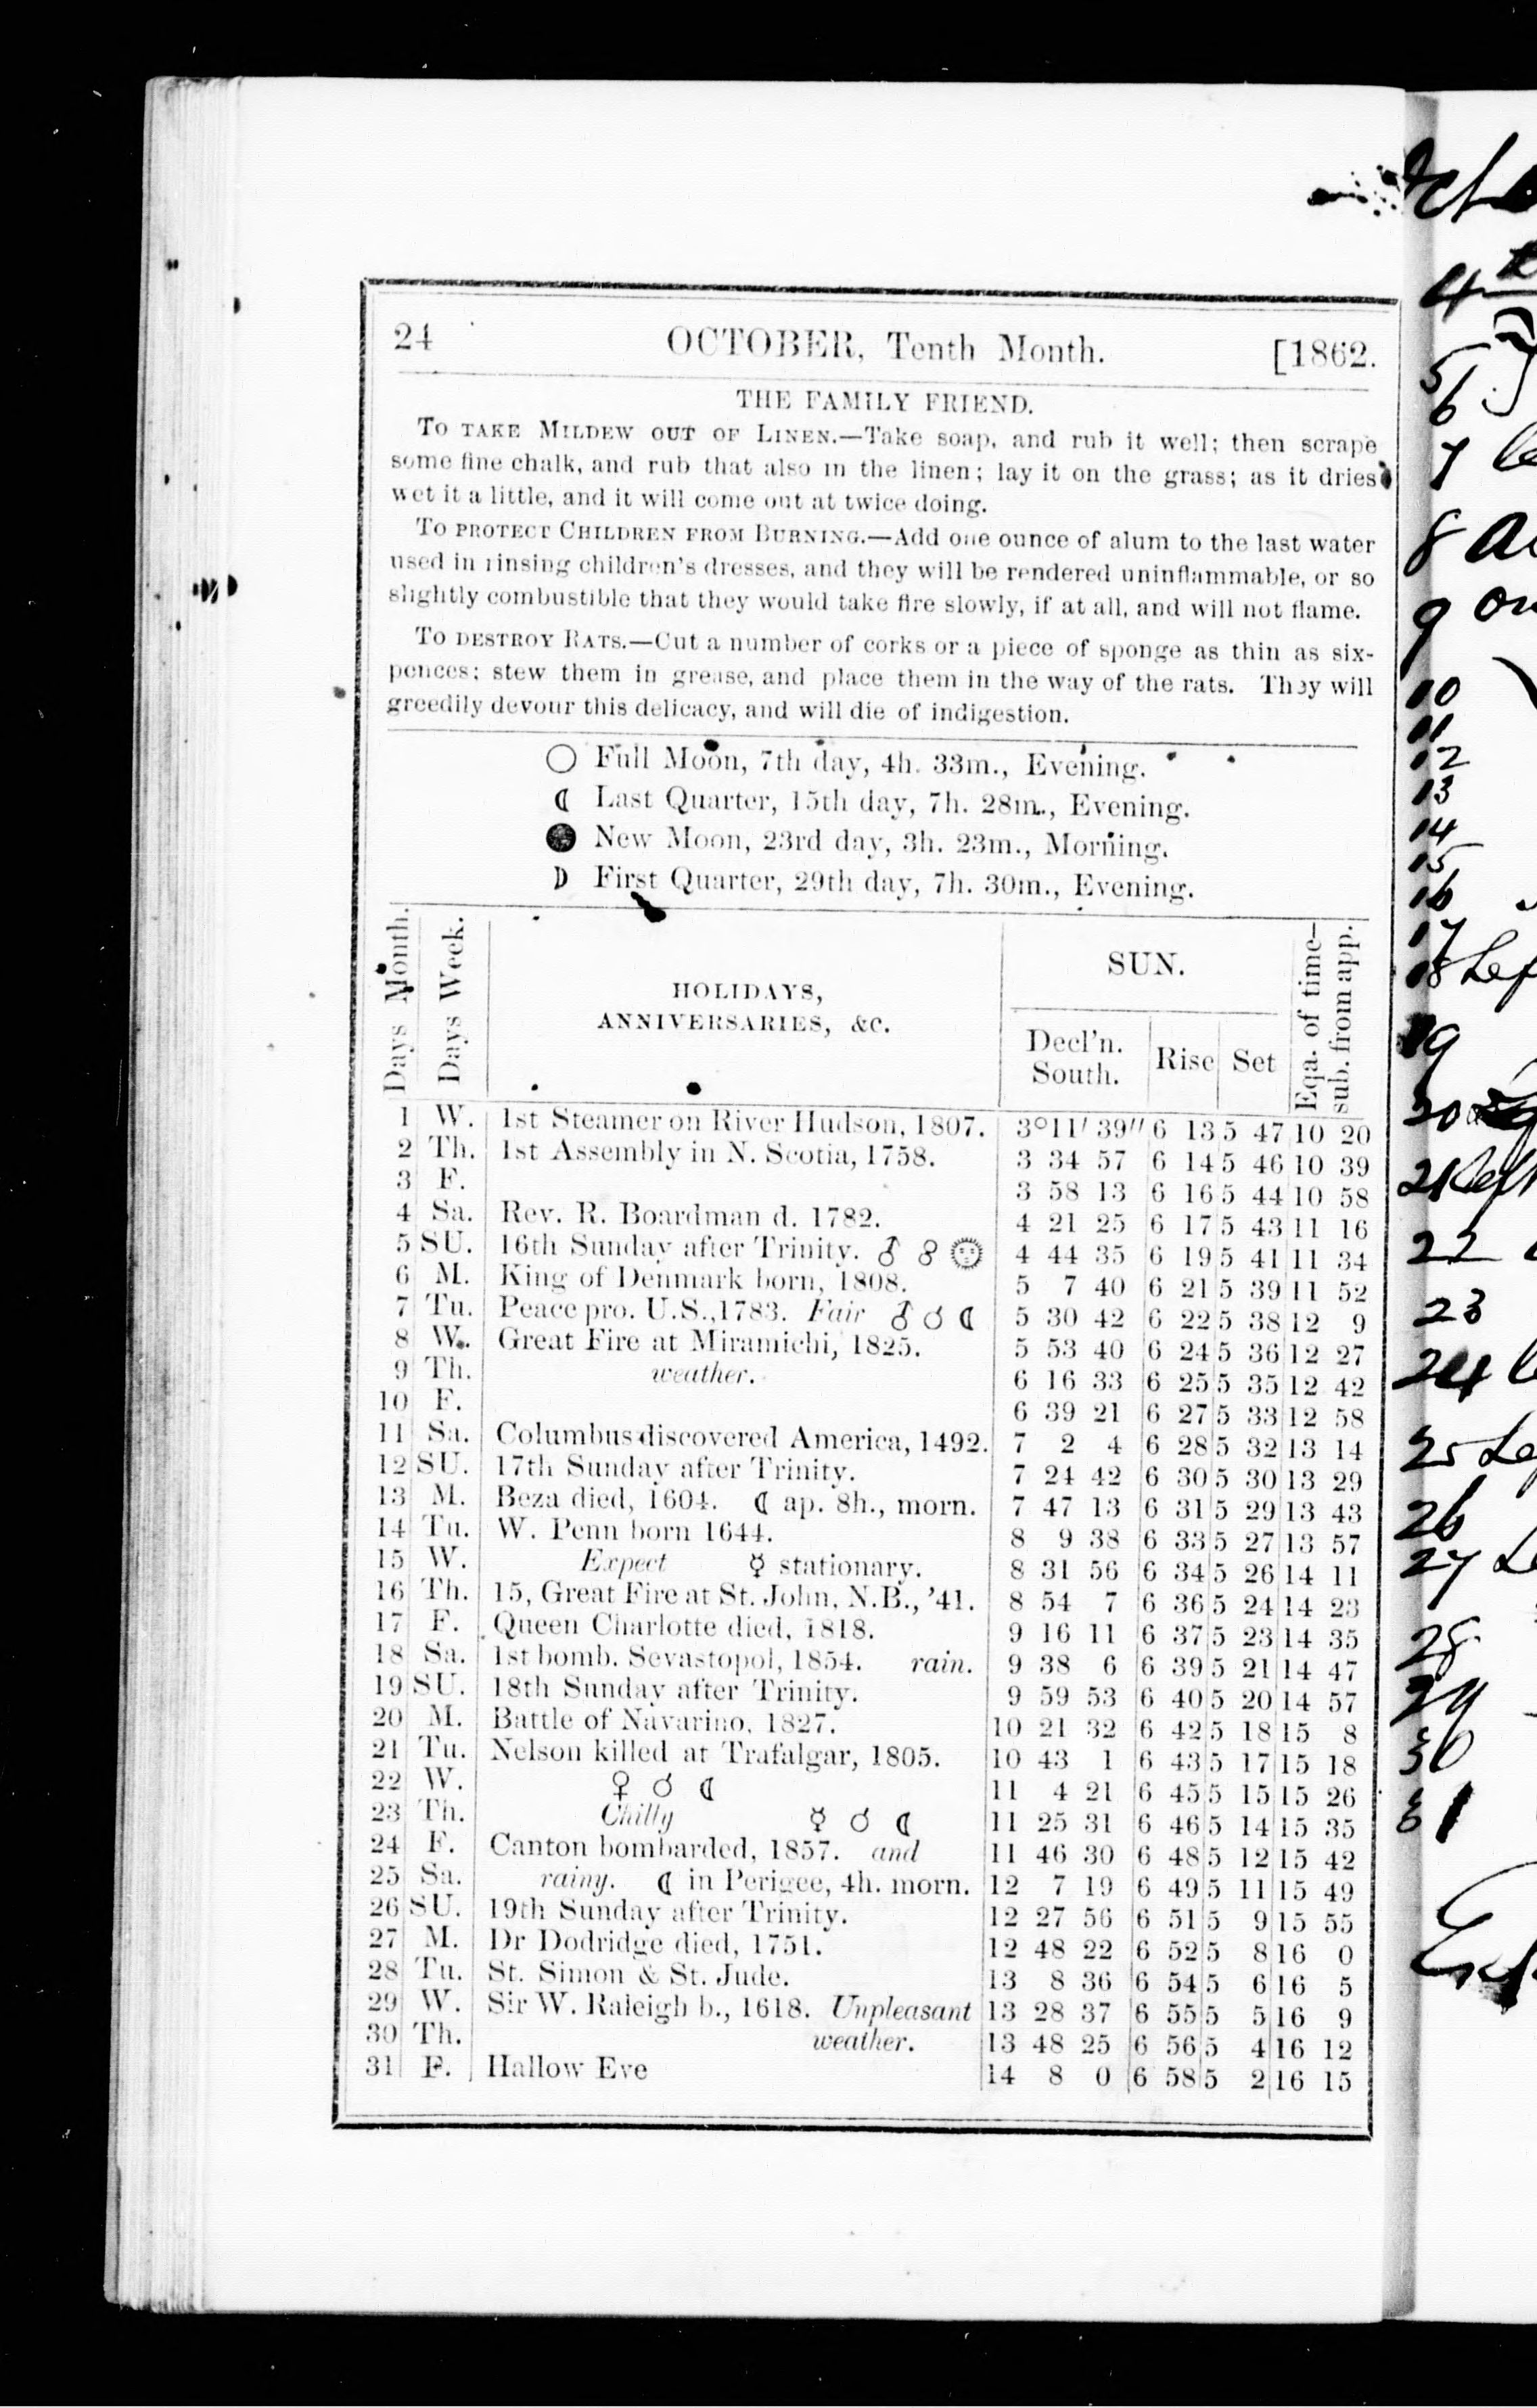 24 OCTOBER, Tenth Month. [1862.
THE FAMILY FRIEND.
TO TAKE MILDEW OUT OF LINEN.—Take soap, and rub it well; then scrape
some fine chalk, and rub that also in the linen; lay it on the grass; as it dries
wet it a little, and it will come out at twice doing.
TO PROTECT CHILDREN FROM BURNING.—Add one ounce of alum to the last water
used in rinsing children's dresses, and they will be rendered uninflammable, or so
slightly combustible that they would take fire slowly, if at all, and will not flame.
TO DESTROY RATS.—Cut a number of corks or a piece of sponge as thin as six-
pences; stew them in grease, and place them in the way of the rats. They will
greedily devour this delicacy, and will die of indigestion.
○ Full Moon, 7th day, 4h. 33m., Evening.
☾ Last Quarter, 15th day, 7h. 28m., Evening.
● New Moon, 23rd day, 3h. 23m., Morning.
☽ First Quarter, 29th day, 7h. 30m., Evening.
Days Month.
Days Week.
HOLIDAYS,
ANNIVERSARIES, &C.
SUN.
Decl'n.
South.
Rise
Set
Eqa. of time—
sub. from app.
1 W. 1st Steamer on River Hudson, 1807. 3° 11′ 39″ 6 13 5 47 10 20
2 Th. 1st Assembly in N. Scotia, 1758. 3 34 57 6 14 5 46 10 39
3 F. 3 58 13 6 16 5 44 10 58
4 Sa. Rev. R. Boardman d. 1782. 4 21 25 6 17 5 43 11 16
5 SU. 16th Sunday after Trinity. ♂ ☍ ☉ 4 44 35 6 19 5 41 11 34
6 M. King of Denmark born, 1808. 5 7 40 6 21 5 39 11 52
7 Tu. Peace pro. U.S., 1783. Fair ♂ ☌ ☾ 5 30 42 6 22 5 38 12 9
8 W. Great Fire at Miramichi, 1825. 5 53 40 6 24 5 36 12 27
9 Th. weather. 6 16 33 6 25 5 35 12 42
10 F. 6 39 21 6 27 5 33 12 58
11 Sa. Columbus discovered America, 1492. 7 2 4 6 28 5 32 13 14
12 SU. 17th Sunday after Trinity. 7 24 42 6 30 5 30 13 29
13 M. Beza died, 1604. ☾ ap. 8h., morn. 7 47 13 6 31 5 29 13 43
14 Tu. W. Penn born 1644. 8 9 38 6 33 5 27 13 57
15 W. Expect ☿ stationary. 8 31 56 6 34 5 26 14 11
16 Th. 15, Great Fire at St. John, N.B., '41. 8 54 7 6 36 5 24 14 23
17 F. Queen Charlotte died, 1818. 9 16 11 6 37 5 23 14 35
18 Sa. 1st bomb. Sevastopol, 1854. rain. 9 38 6 6 39 5 21 14 47
19 SU. 18th Sunday after Trinity. 9 59 53 6 40 5 20 14 57
20 M. Battle of Navarino, 1827. 10 21 32 6 42 5 18 15 8
21 Tu. Nelson killed at Trafalgar, 1805. 10 43 1 6 43 5 17 15 18
22 W. ♀ ☌ ☾ 11 4 21 6 45 5 15 15 26
23 Th. Chilly ☿ ☌ ☾ 11 25 31 6 46 5 14 15 35
24 F. Canton bombarded, 1857. and 11 46 30 6 48 5 12 15 42
25 Sa. rainy. ☾ in Perigee, 4h. morn. 12 7 19 6 49 5 11 15 49
26 SU. 19th Sunday after Trinity. 12 27 56 6 51 5 9 15 55
27 M. Dr Dodridge died, 1751. 12 48 22 6 52 5 8 16 0
28 Tu. St. Simon & St. Jude. 13 8 36 6 54 5 6 16 5
29 W. Sir W. Raleigh b., 1618. Unpleasant 13 28 37 6 55 5 5 16 9
30 Th. weather. 13 48 25 6 56 5 4 16 12
31 F. Hallow Eve 14 8 0 6 58 5 2 16 15
4
5
6
7
8
9
10
11
12
13
14
15
16
17
18
19
20
21
22
23
24
25
26
27
28
29
30
31